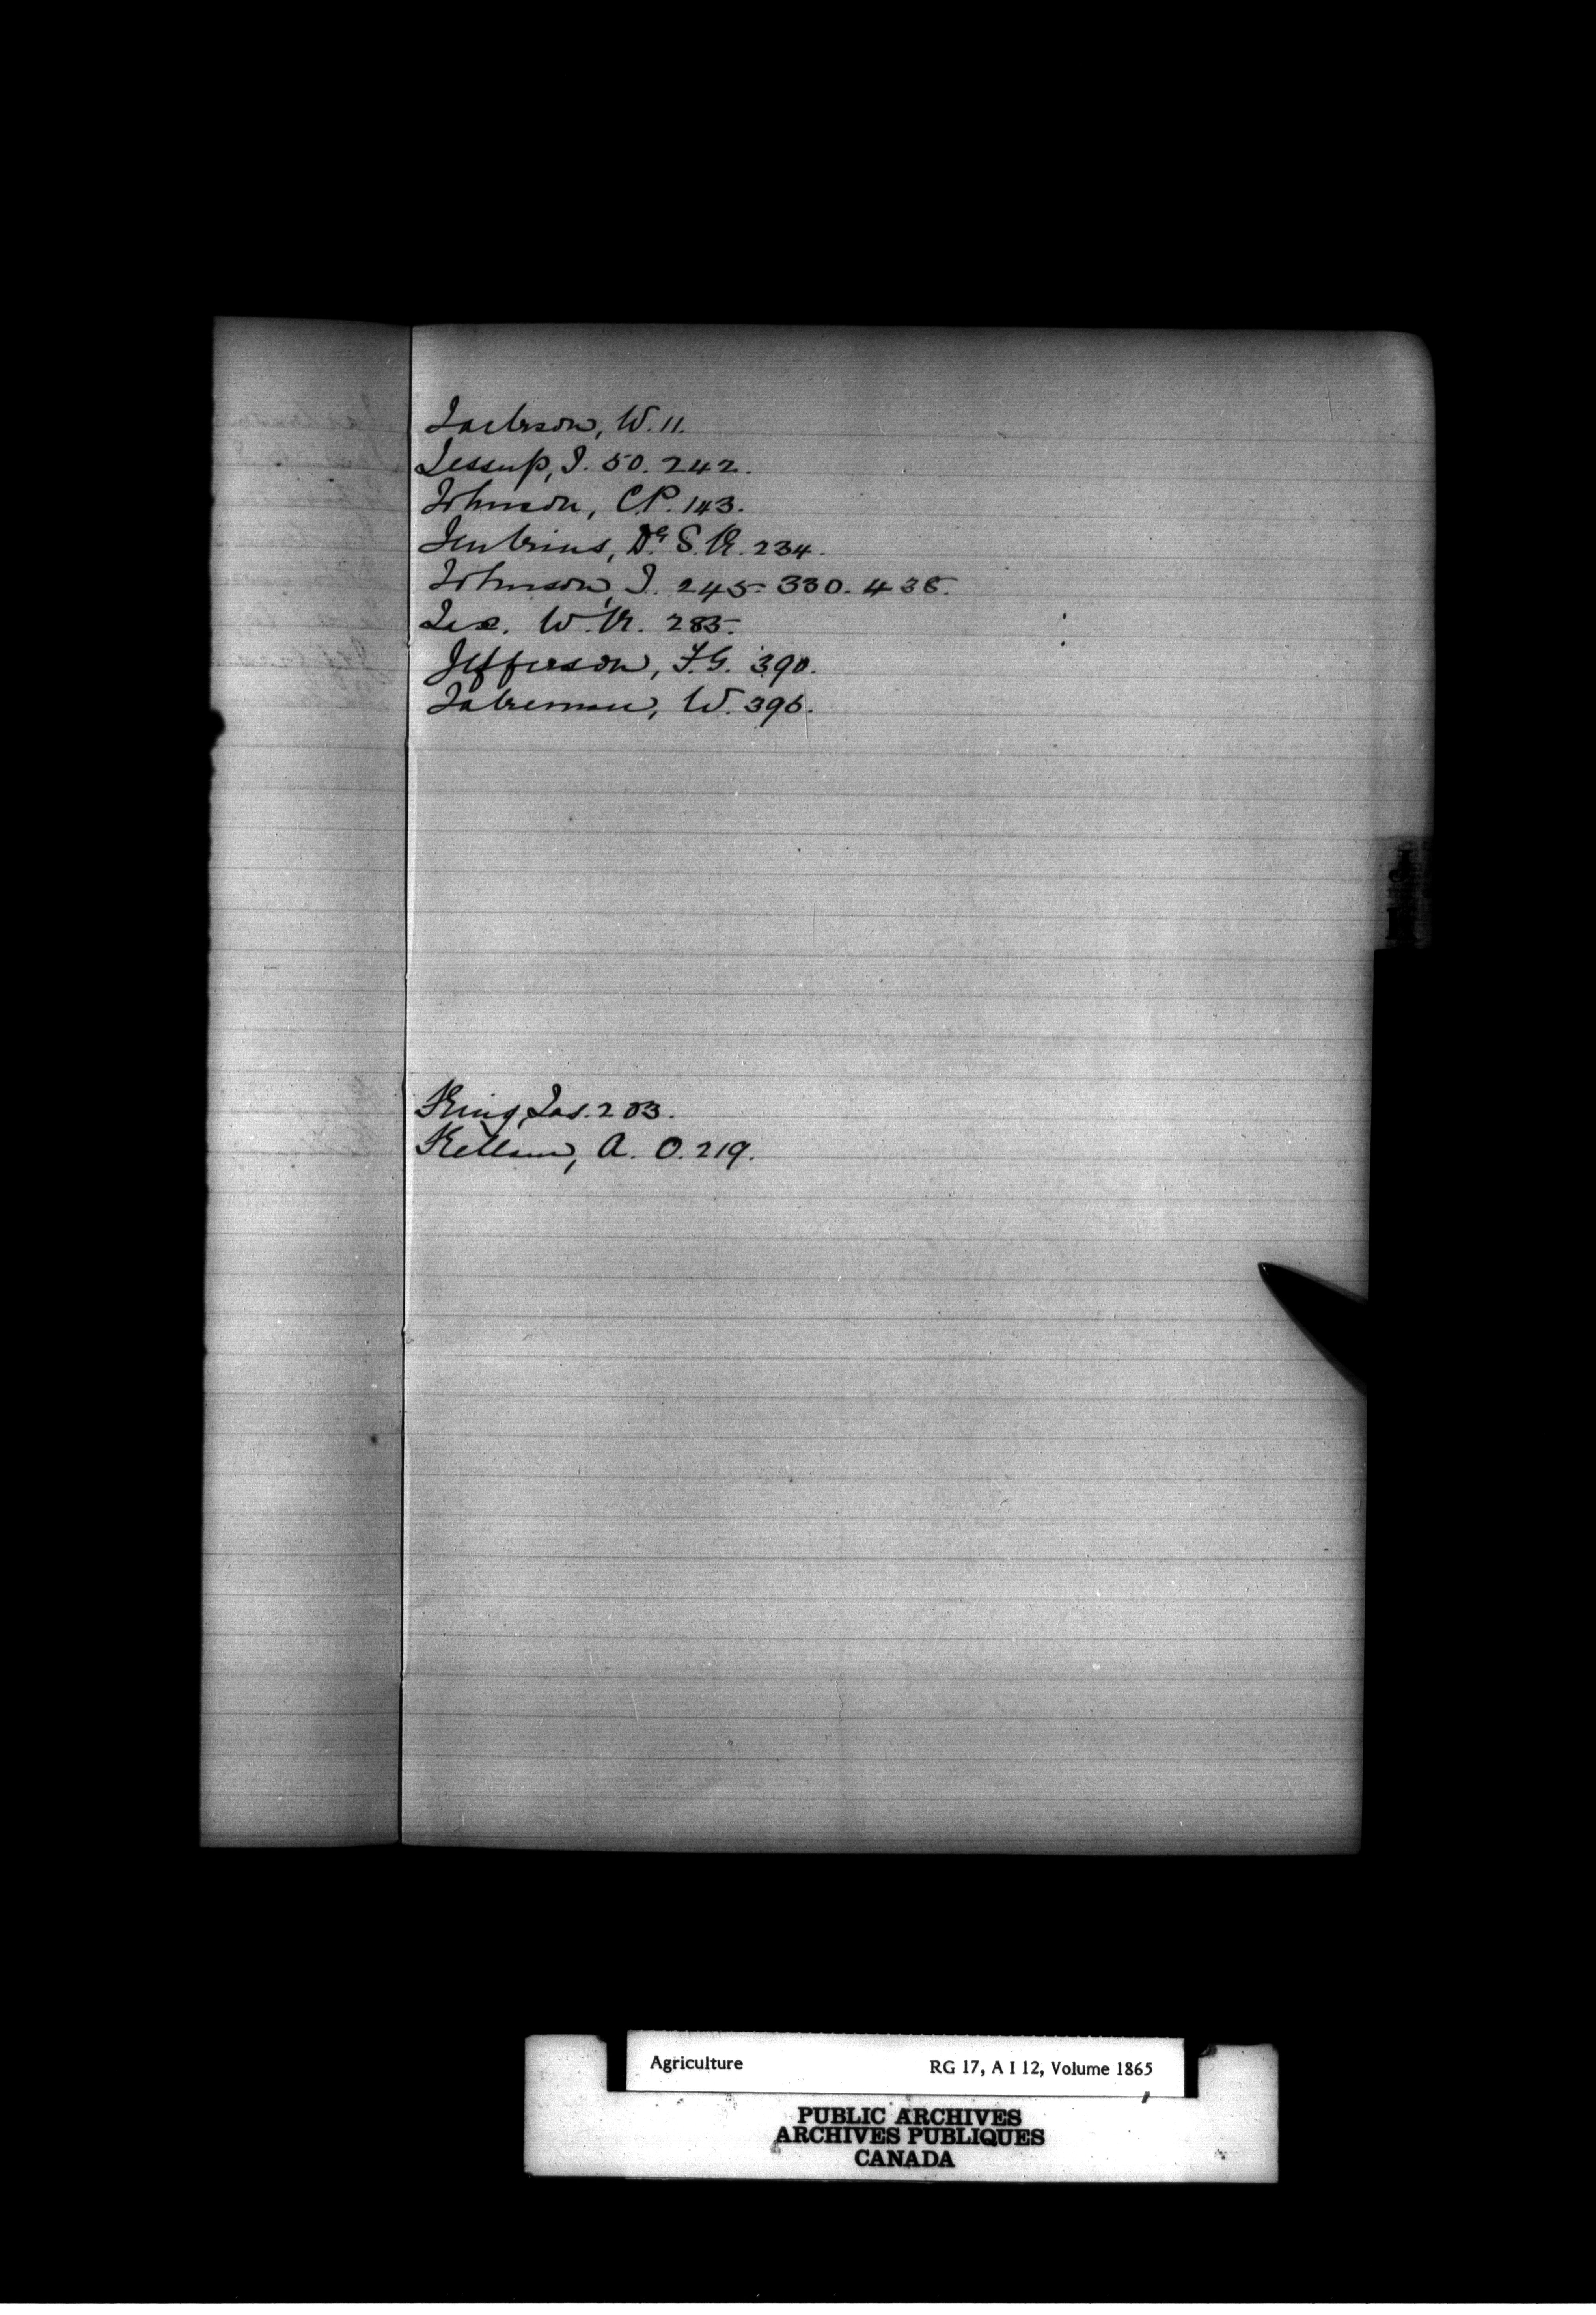 Jackson, W. 11.
Jessup, J. 50. 242.
Johnson, C.P. 143.
Jenkins, Dr. S. R. 234.
Johnson, J. 245. 330. 438.
W. R. 285.
Jefferson, F.G. 390.
Jakeman, W. 396.
King, Jas. 203.
Kellam, A. O. 219.
Agriculture RG 17, A I 12, Volume 1865
PUBLIC ARCHIVES
ARCHIVES PUBLIQUES
CANADA